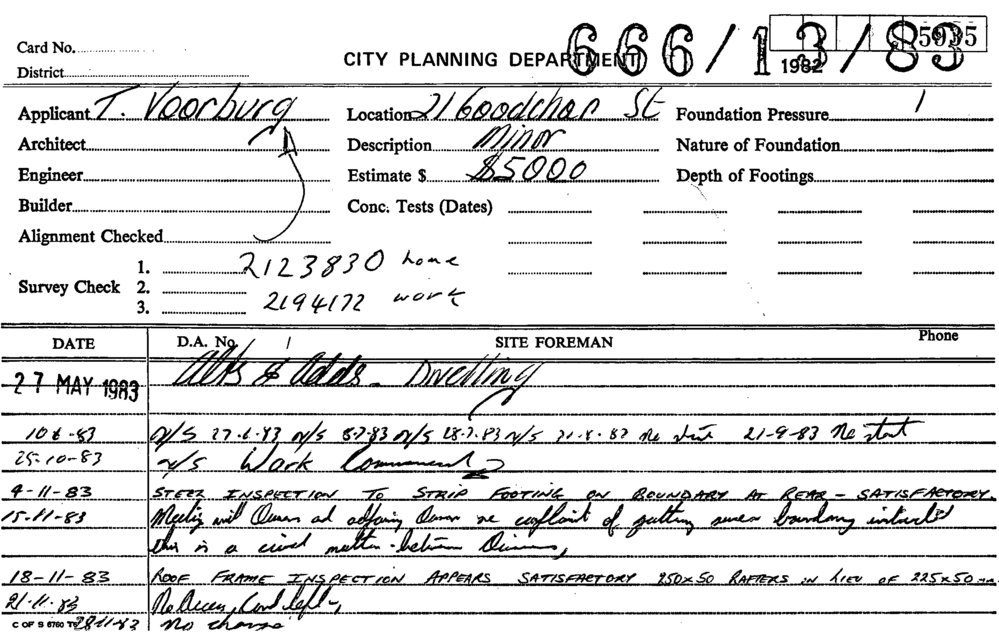 5935
Card No.
CITY PLANNING DEPARTMENT 666/13/83
1982
District
Applicant T. Voorburg Location 21 Goodchap St Foundation Pressure
Architect Description Minor Nature of Foundation
Engineer Estimate $ $5000 Depth of Footings
Builder Conc. Tests (Dates)
Alignment Checked
1. 2123830 home
Survey Check 2.
3. 2194172 work
DATE D.A. No. SITE FOREMAN Phone
27 MAY 1983 Alts & Adds - Dwelling
10-6-83 N/S 27-6-83 N/S 8-7-83 N/S 28-7-83 N/S 31-8-83 No start 21-9-83 No start
25-10-83 N/S Work Commenced
9-11-83 STEEL INSPECTION TO STRIP FOOTING ON BOUNDARY AT REAR - SATISFACTORY.
15-11-83 Meeting with Owner and adjoining Owner re complaint of guttering over boundary
this is a civil matter between Owners,
18-11-83 ROOF FRAME INSPECTION APPEARS SATISFACTORY 250x50 RAFTERS IN LIEU OF 225x50 mm
21-11-83 No Access, Card left,
C OF S 6760 28-11-83 No change